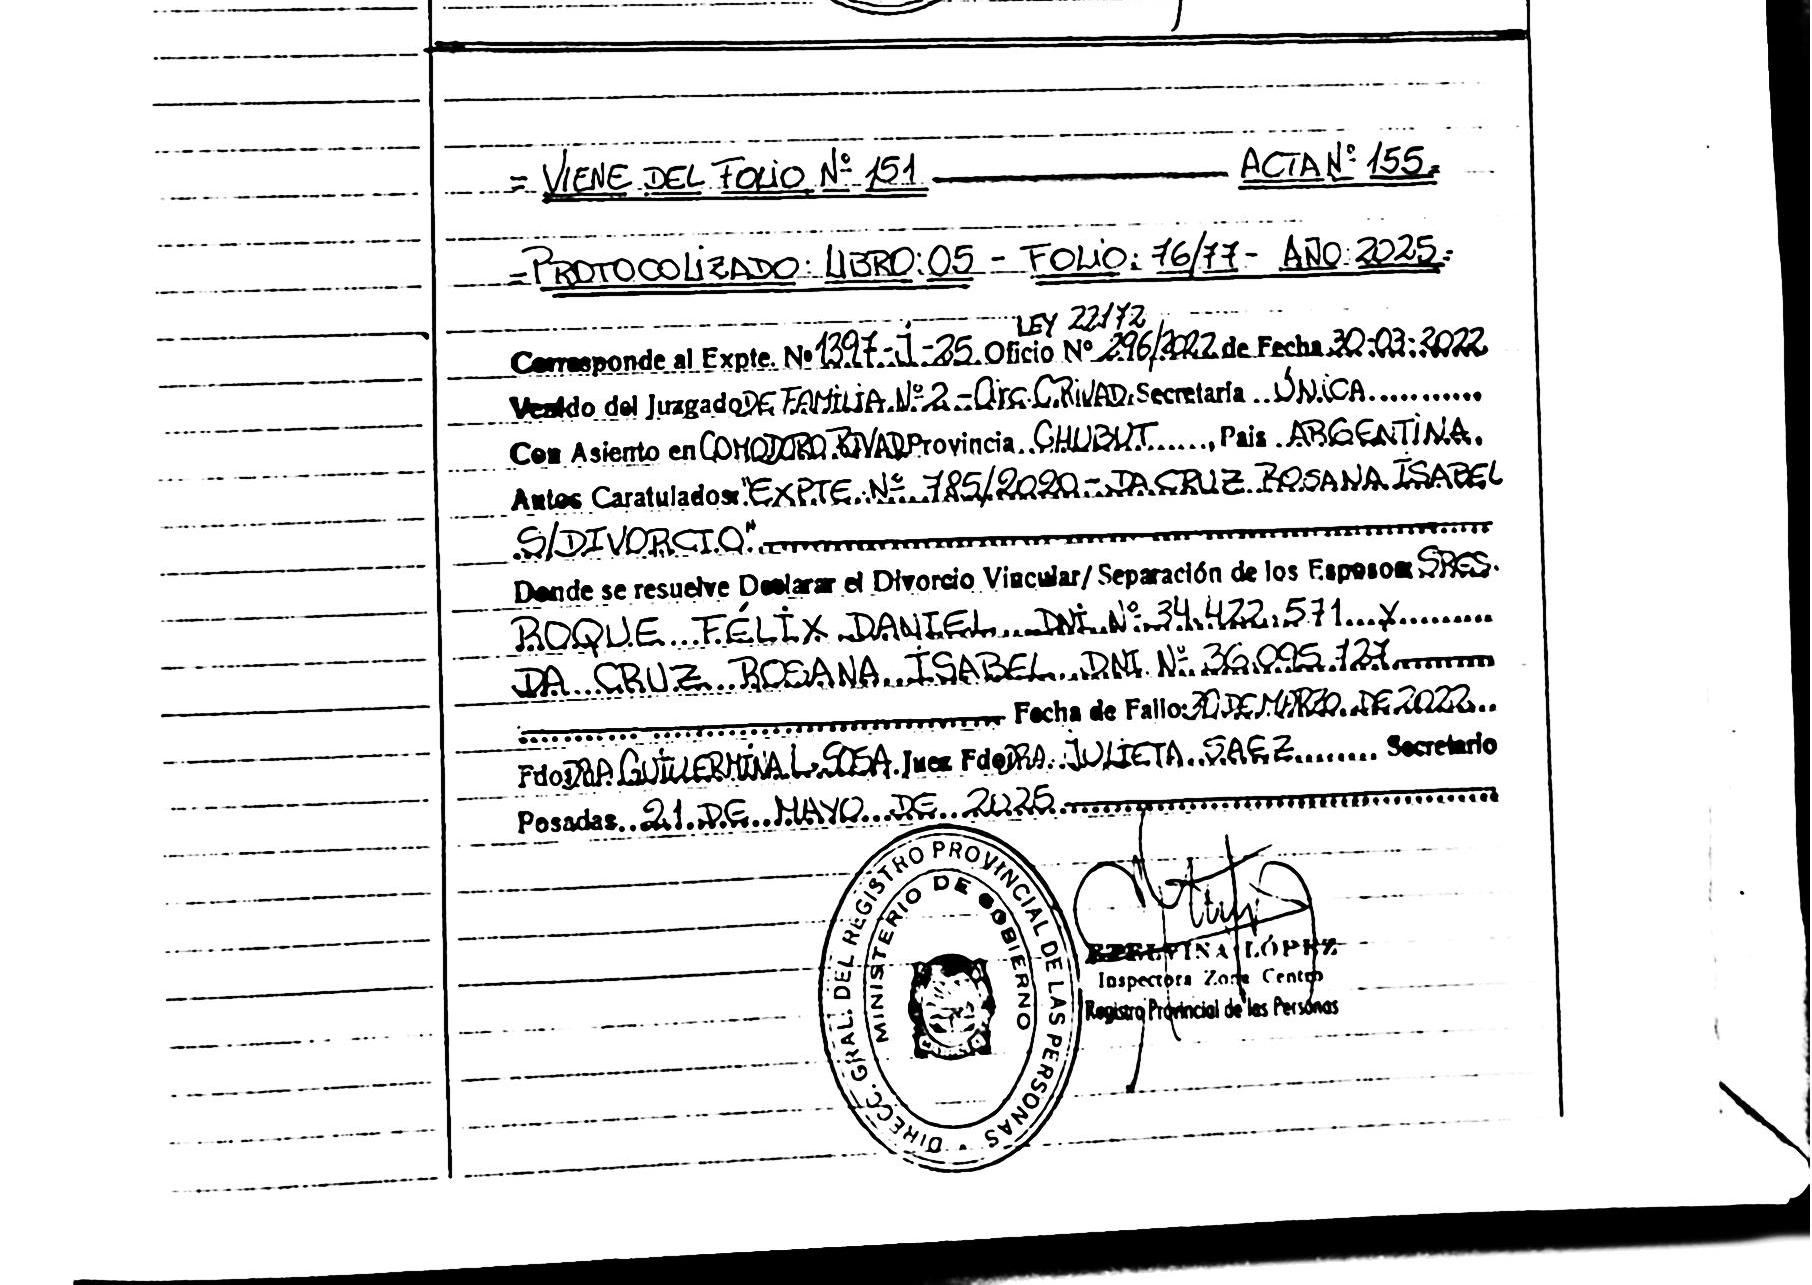 = VIENE DEL FOLIO Nº 151 ACTA Nº 155.=
= PROTOCOLIZADO: LIBRO: 05 - FOLIO: 76/77 - AÑO: 2025.=
LEY 22172
Corresponde al Expte. Nº 1397-J-25. Oficio Nº 296/2022 de Fecha 30-03-2022
Venido del Juzgado DE FAMILIA Nº 2 - Circ. C. RIVAD. Secretaría ÚNICA
Con Asiento en COMODORO RIVAD Provincia CHUBUT, País ARGENTINA.
Autos Caratulados: "EXPTE. Nº 785/2020 - DA CRUZ ROSANA ISABEL
S/DIVORCIO"
Donde se resuelve Declarar el Divorcio Vincular/ Separación de los Esposos: SRES.
ROQUE FÉLIX DANIEL DNI Nº 34.422.571 y
DA CRUZ ROSANA ISABEL DNI Nº 36.095.727
Fecha de Fallo: 30 DE MARZO DE 2022
Fdo: DRA GUILLERMINA L. SOSA. Juez Fdo: DRA. JULIETA SAEZ Secretario
Posadas 21 DE MAYO DE 2025
DIRECC. GRAL. DEL REGISTRO PROVINCIAL DE LAS PERSONAS
MINISTERIO DE GOBIERNO
LÓPEZ
Inspectora Zona Centro
Registro Provincial de las Personas